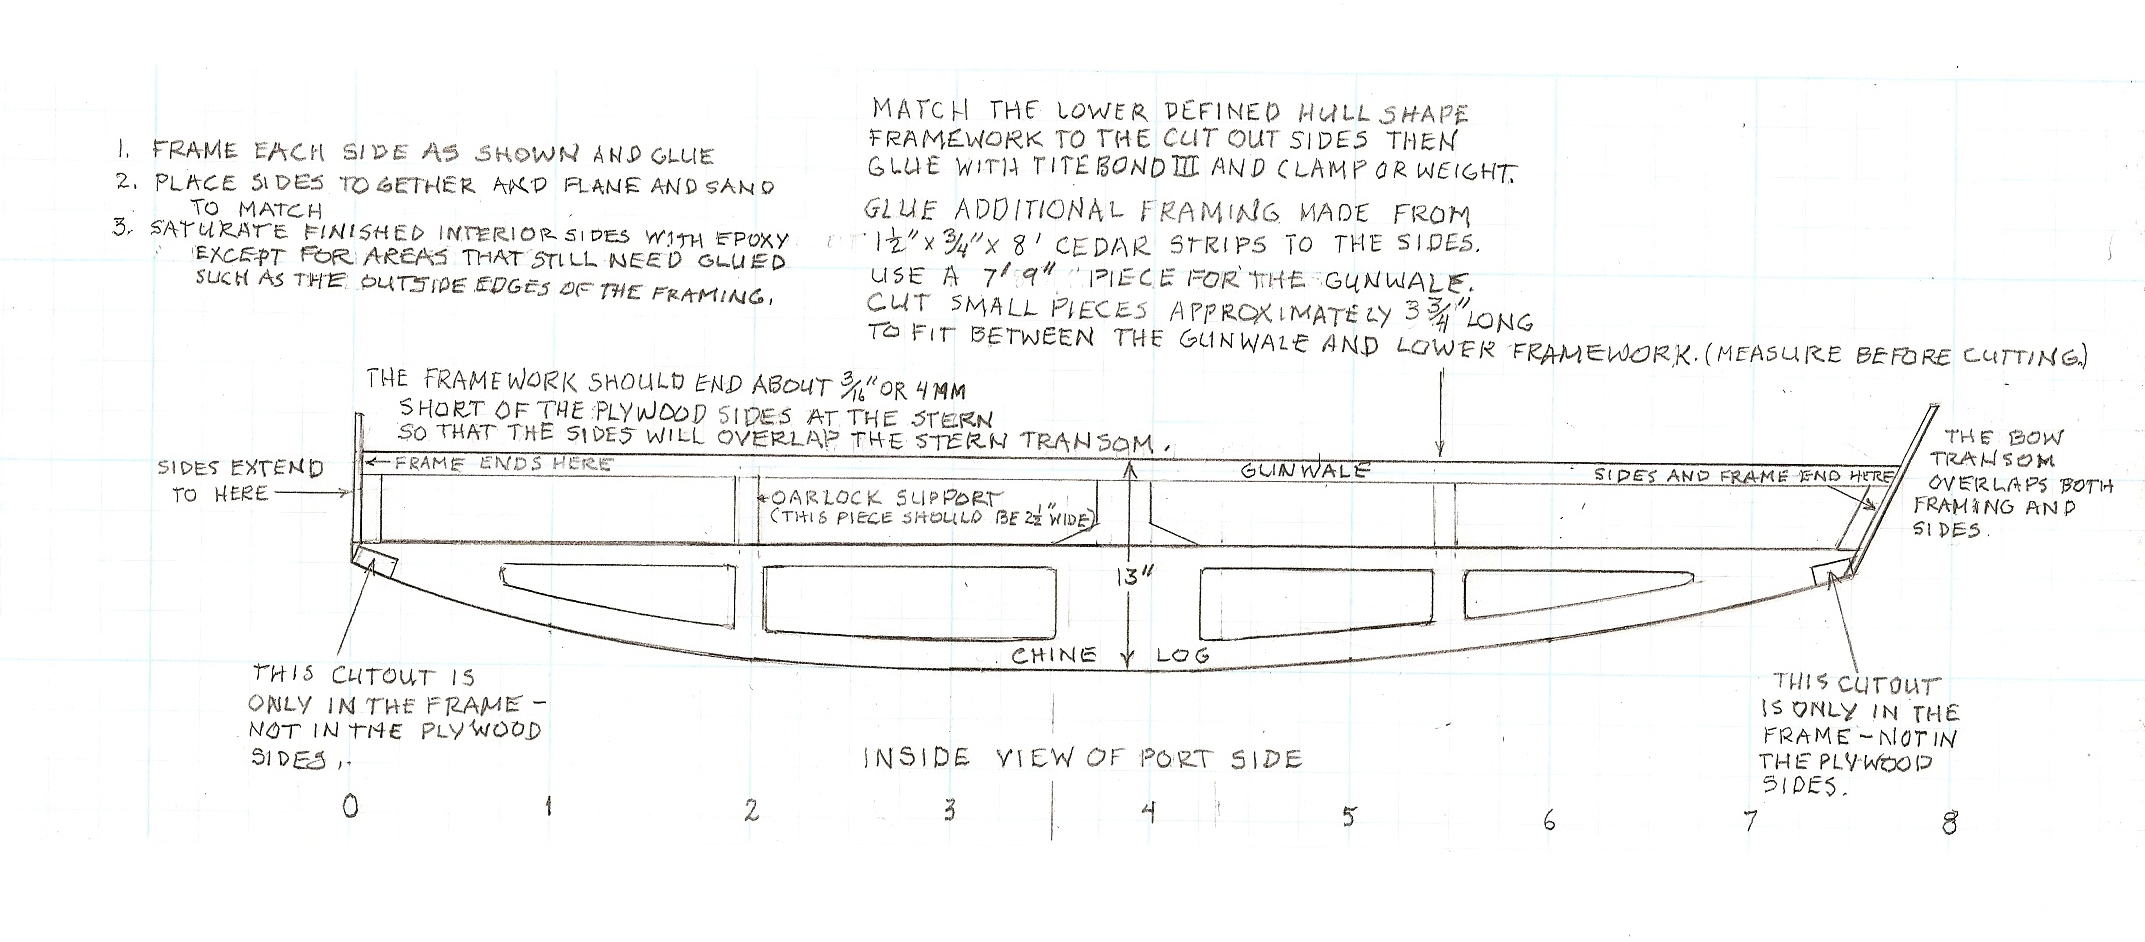 1. FRAME EACH SIDE AS SHOWN AND GLUE
2. PLACE SIDES TOGETHER AND PLANE AND SAND
TO MATCH
3. SATURATE FINISHED INTERIOR SIDES WITH EPOXY
EXCEPT FOR AREAS THAT STILL NEED GLUED
SUCH AS THE OUTSIDE EDGES OF THE FRAMING.
MATCH THE LOWER DEFINED HULL SHAPE
FRAMEWORK TO THE CUT OUT SIDES THEN
GLUE WITH TITEBOND III AND CLAMP OR WEIGHT.
GLUE ADDITIONAL FRAMING MADE FROM
1½" x ¾" x 8' CEDAR STRIPS TO THE SIDES.
USE A 7' 9" PIECE FOR THE GUNWALE.
CUT SMALL PIECES APPROXIMATELY 3 ¾" LONG
TO FIT BETWEEN THE GUNWALE AND LOWER FRAMEWORK. (MEASURE BEFORE CUTTING.)
THE FRAMEWORK SHOULD END ABOUT 3/16" OR 4MM
SHORT OF THE PLYWOOD SIDES AT THE STERN
SO THAT THE SIDES WILL OVERLAP THE STERN TRANSOM.
SIDES EXTEND
TO HERE
FRAME ENDS HERE
GUNWALE
SIDES AND FRAME END HERE
THE BOW
TRANSOM
OVERLAPS BOTH
FRAMING AND
SIDES.
OARLOCK SUPPORT
(THIS PIECE SHOULD BE 2½" WIDE)
13"
CHINE LOG
THIS CUTOUT IS
ONLY IN THE FRAME -
NOT IN THE PLYWOOD
SIDES.
THIS CUTOUT
IS ONLY IN THE
FRAME - NOT IN
THE PLYWOOD
SIDES.
INSIDE VIEW OF PORT SIDE
0 1 2 3 4 5 6 7 8